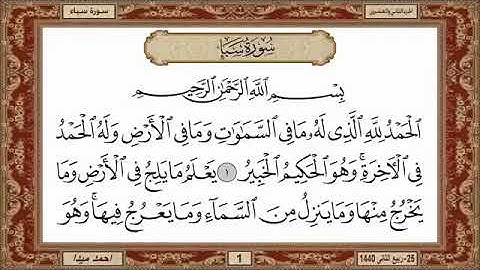 سورة سباء
الجزء الثاني والعشرون
سُورَةُ سَبَإٍ
بِسْمِ ٱللَّهِ ٱلرَّحْمَٰنِ ٱلرَّحِيمِ
ٱلْحَمْدُ لِلَّهِ ٱلَّذِى لَهُۥ مَا فِى ٱلسَّمَٰوَٰتِ وَمَا فِى ٱلْأَرْضِ وَلَهُ ٱلْحَمْدُ
فِى ٱلْءَاخِرَةِ ۚ وَهُوَ ٱلْحَكِيمُ ٱلْخَبِيرُ ١ يَعْلَمُ مَا يَلِجُ فِى ٱلْأَرْضِ وَمَا
يَخْرُجُ مِنْهَا وَمَا يَنزِلُ مِنَ ٱلسَّمَآءِ وَمَا يَعْرُجُ فِيهَا ۚ وَهُوَ
احمد ميدا
1
25- ربيع الثاني 1440